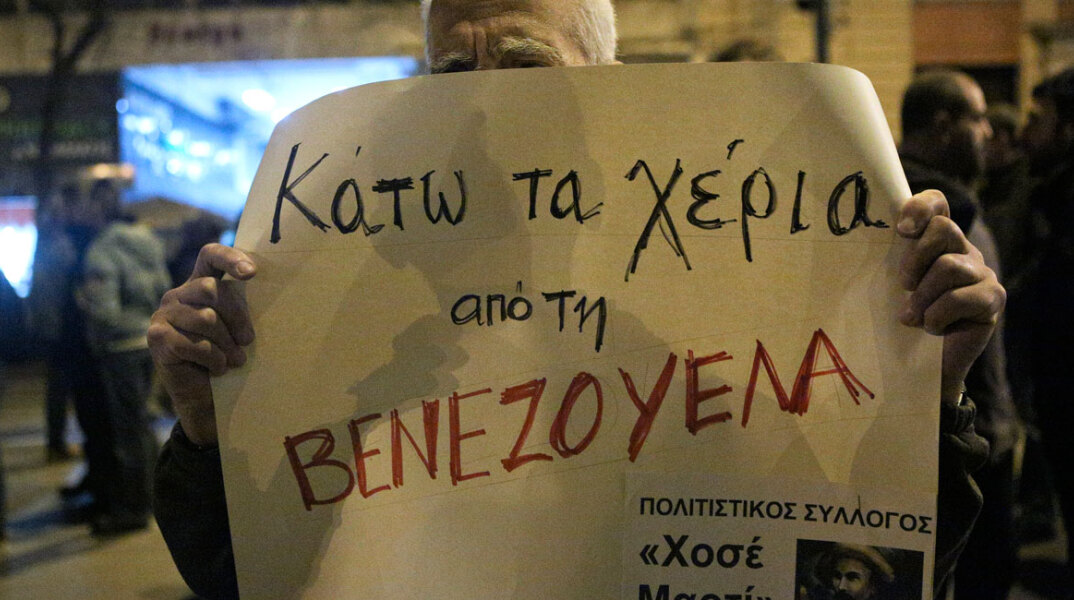 Κάτω τα χέρια
από τη
ΒΕΝΕΖΟΥΕΛΑ
ΠΟΛΙΤΙΣΤΙΚΟΣ ΣΥΛΛΟΓΟΣ
«Χοσέ
Μαρτί»